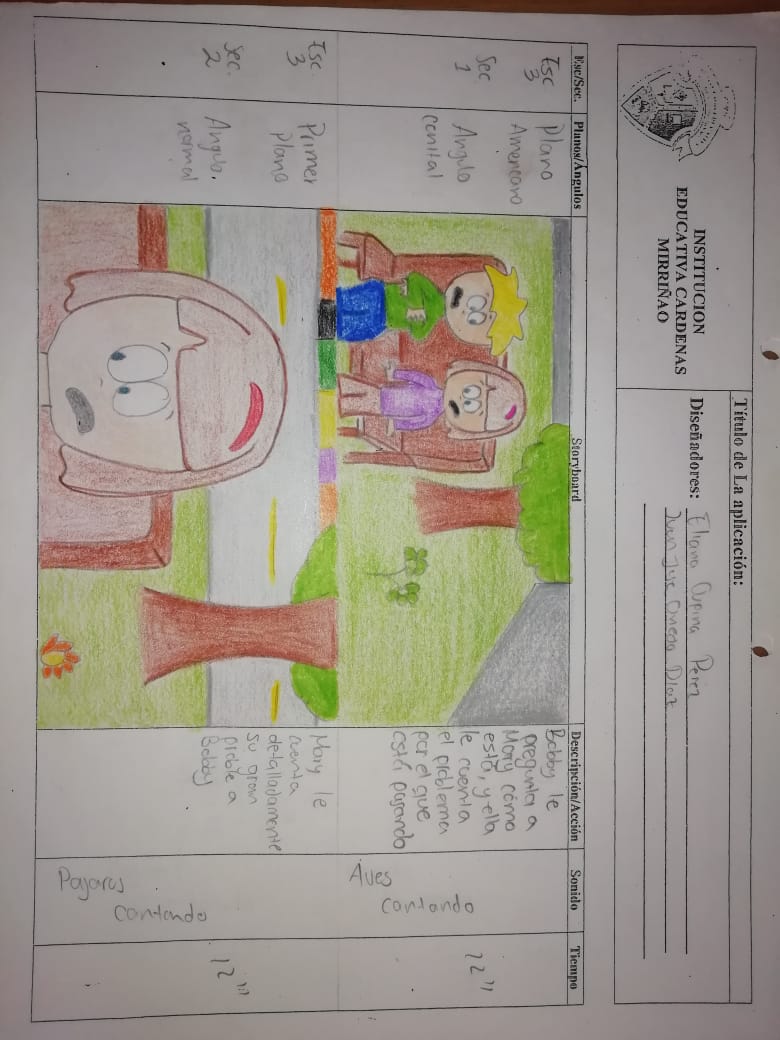 INSTITUCION
EDUCATIVA CARDENAS
MIRRIÑAO
Título de La aplicación:
Diseñadores: Eliana Ospina Perez
Juan Jose Diaz
Esc/Sec.
Planos/Ángulos
Storyboard
Descripción/Acción
Sonido
Tiempo
Esc
3
Sec
1
Plano
Americano
Angulo
cenital
Bobby le
pregunta a
Mary cómo
está, y ella
le cuenta
el problema
por el que
está pasando
Aves
cantando
12"
Esc
3
Sec.
2
Primer
Plano
Angulo.
normal
Mary le
cuenta
detalladamente
su gran
proble a
Bobby
Pajaros
cantando
12"